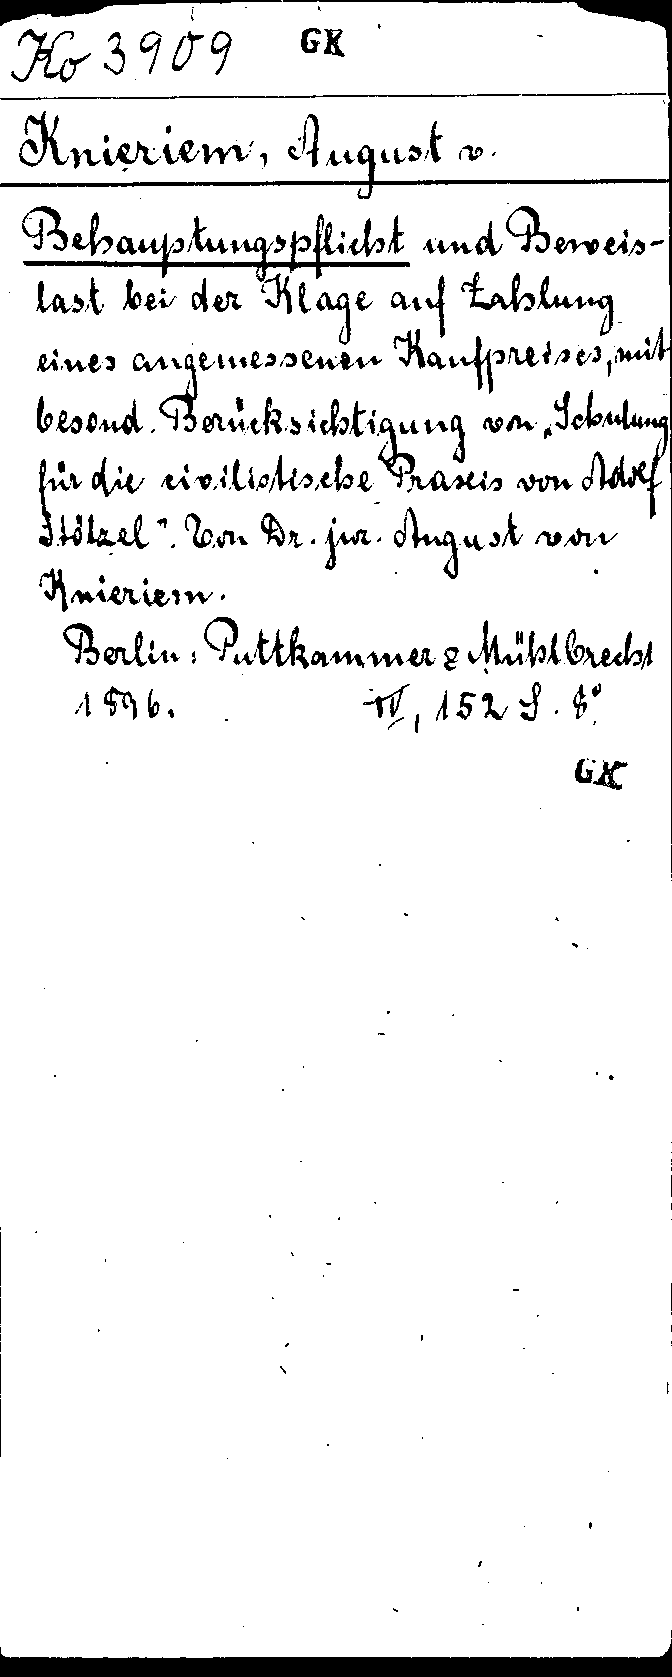 Ko 3909 GK
Knieriem, August v.
Behauptungspflicht und Beweis-
last bei der Klage auf Zahlung
eines angemessenen Kaufpreises, mit
besond. Berücksichtigung von „Schulung
für die civilistische Praxis von Adolf
Stölzel“. Von Dr. jur. August von
Knieriem.
Berlin: Puttkammer & Mühlbrecht
1896. IV, 152 S. 8°.
GK